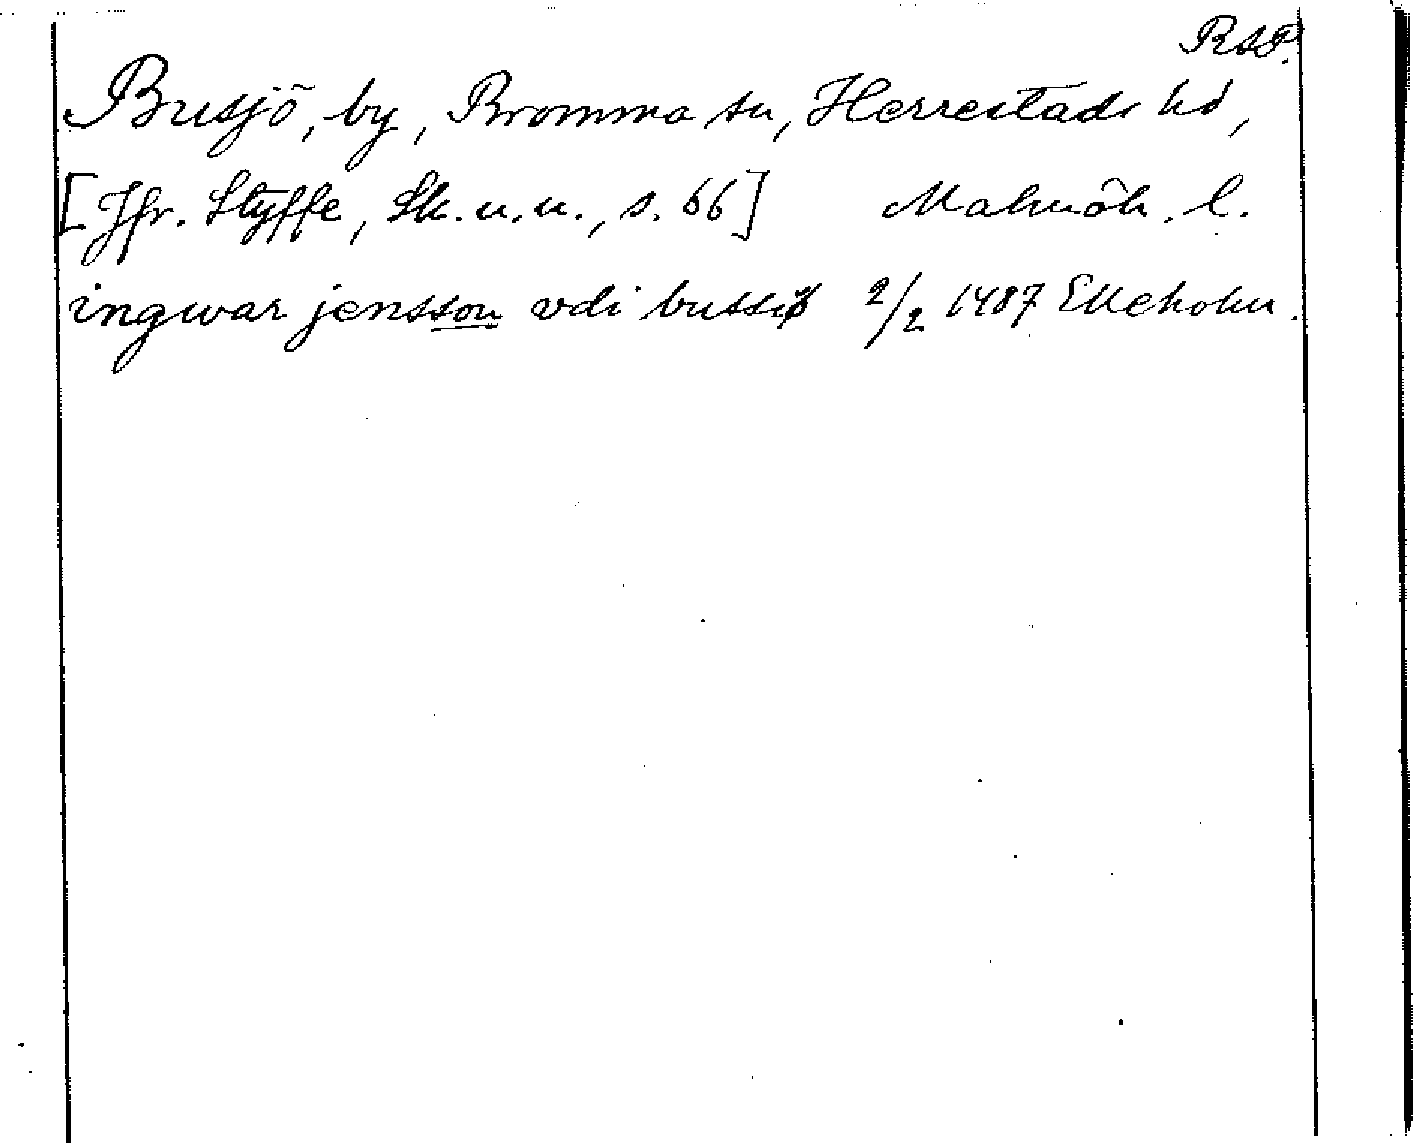 RAP.
Busjö, by, Bromma sn, Herrestads hd,
[Jfr. Styffe, Sk. u. u., s. 66] Malmöh. l.
ingwar jensson vdi bussiø 2/2 1487 Elleholm.